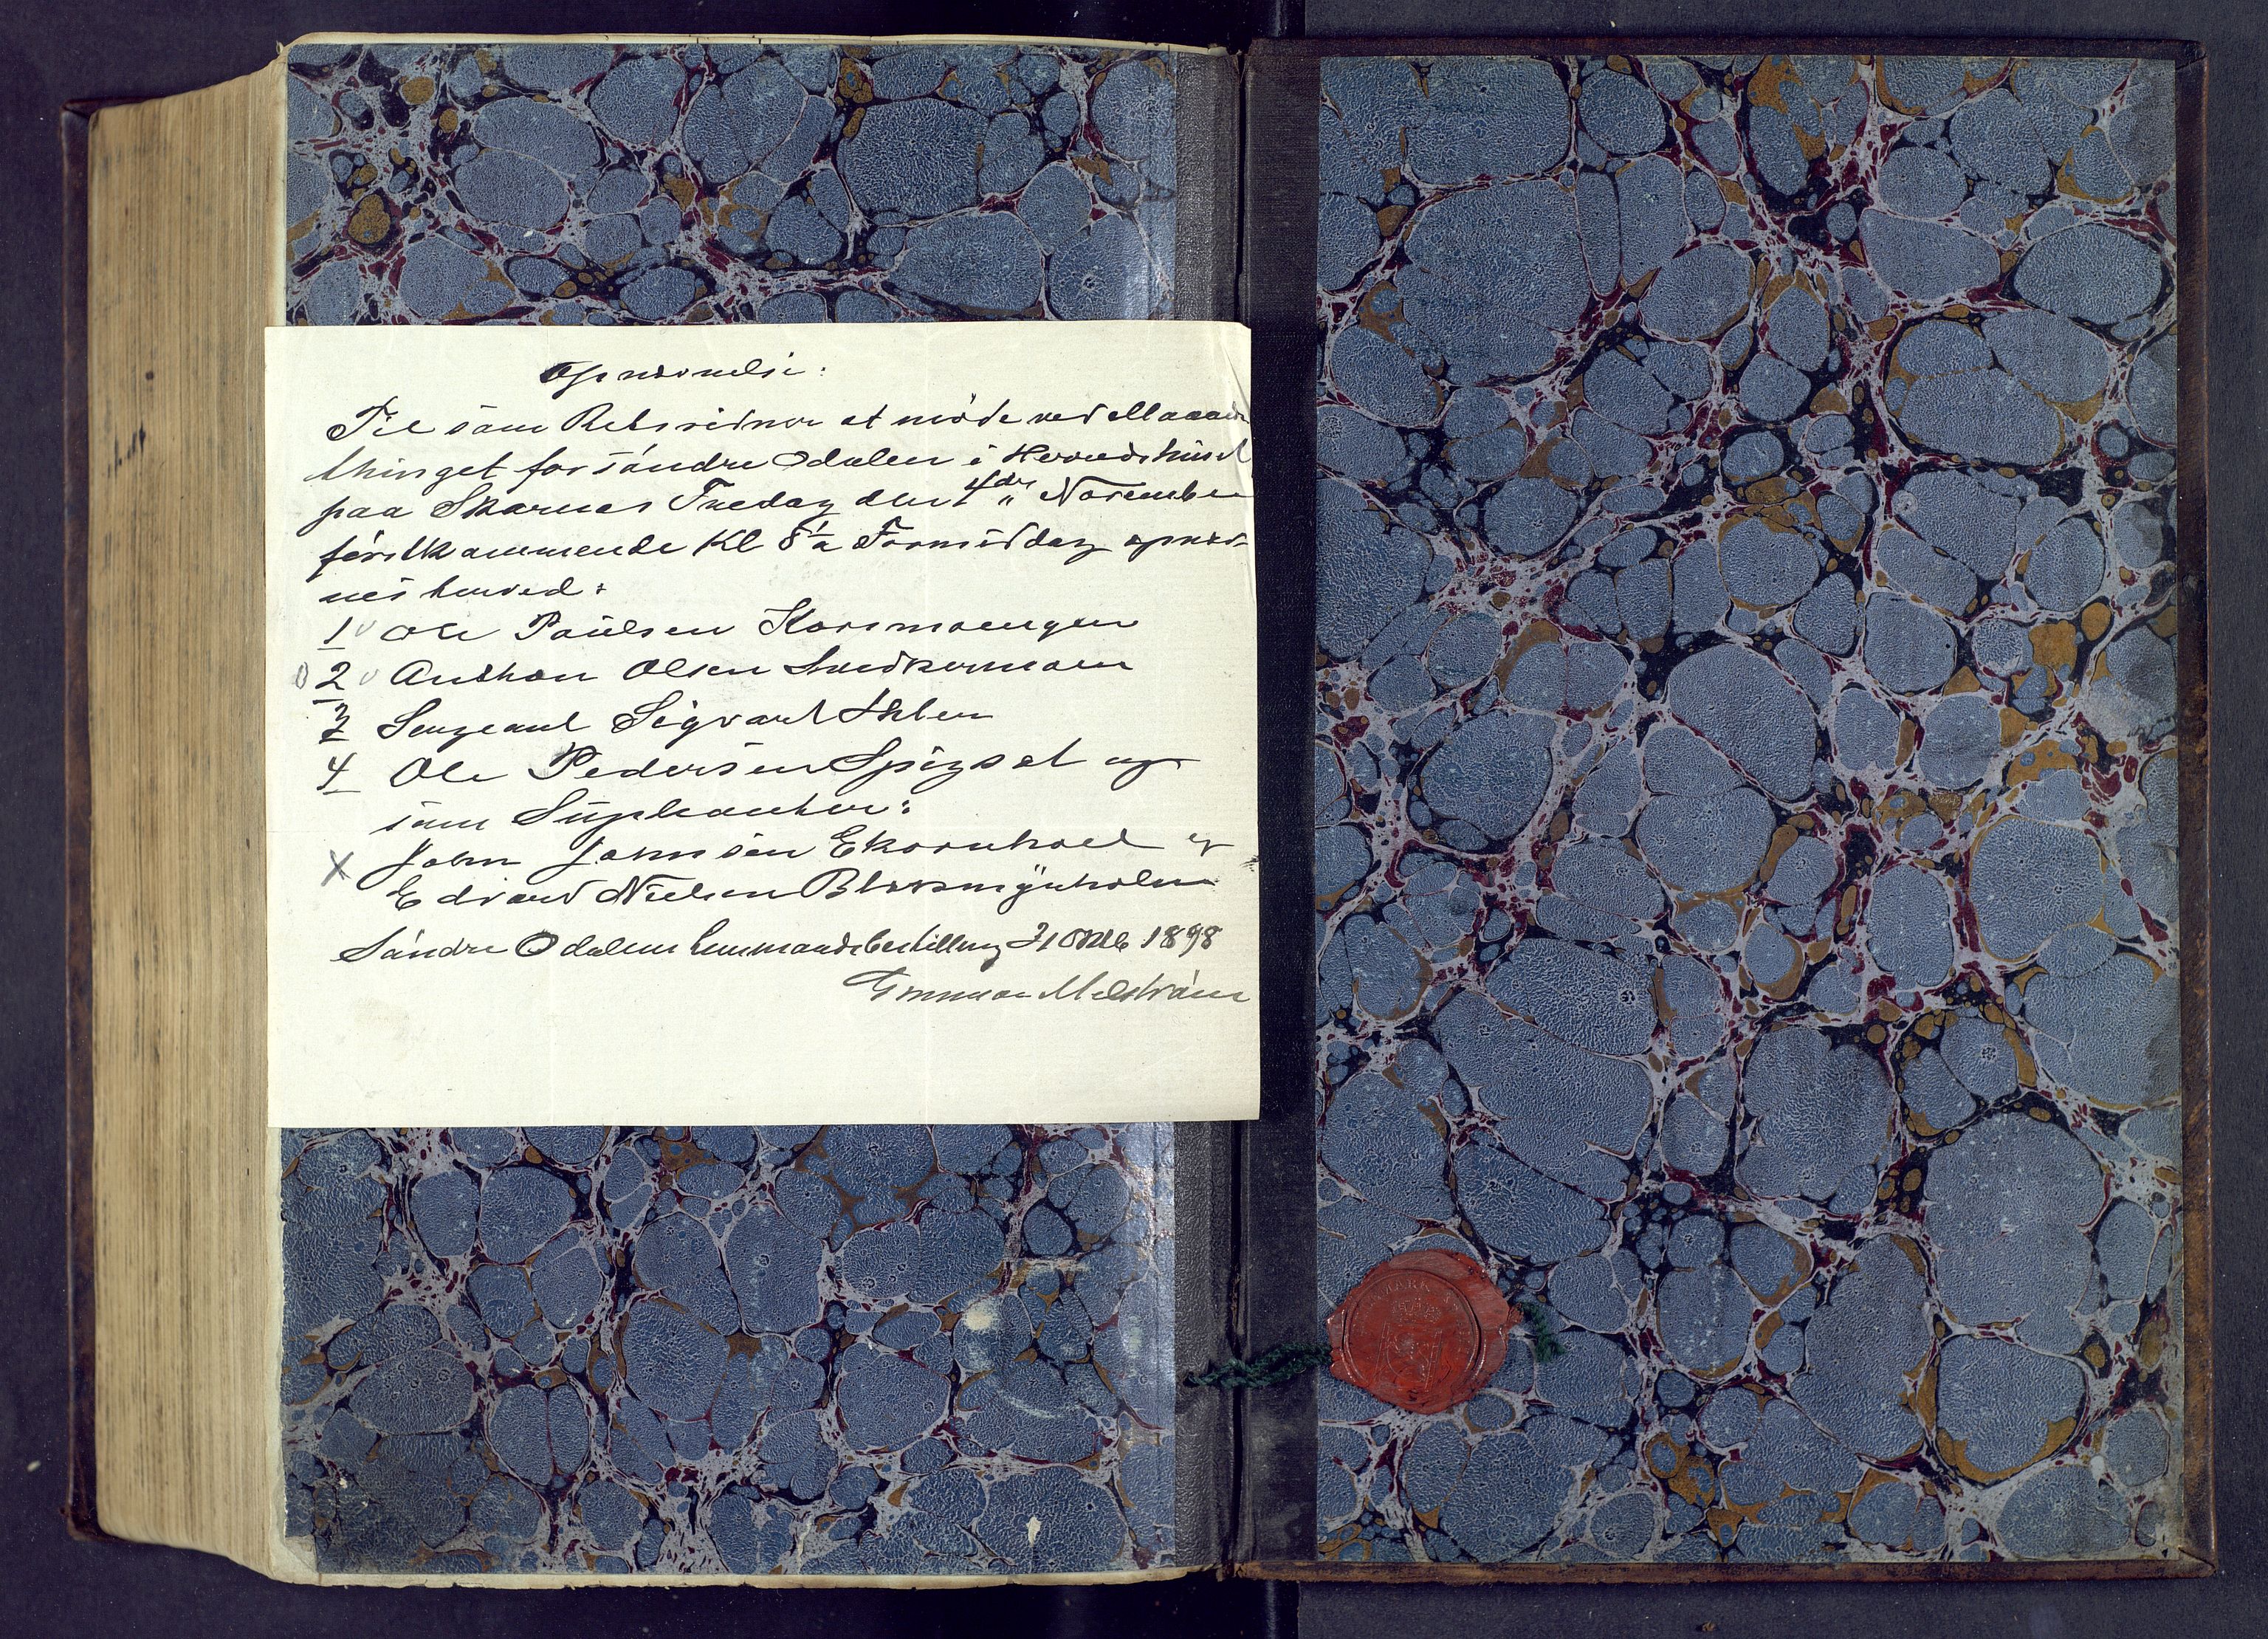 Opnævnelse:
Til som Retsvidner at møde ved Maaneds
thinget for søndre Odalen i Herredshuset
paa Skarnes Fredag den 4de November
førstkommende Kl 8½ Formiddag opnæv-
nes herved:
1 Ole Paulsen Korsmoengen
2 Anthon Olsen
3 Sergeant Sigvart
4 Ole Pedersen Spigset og
som Supleanter:
John Johnsen Ekornhoel og
Edvard Nielsen
Søndre Odalens Lensmandsbestilling 31 Oktb 1898
Gunnar Melstrøm